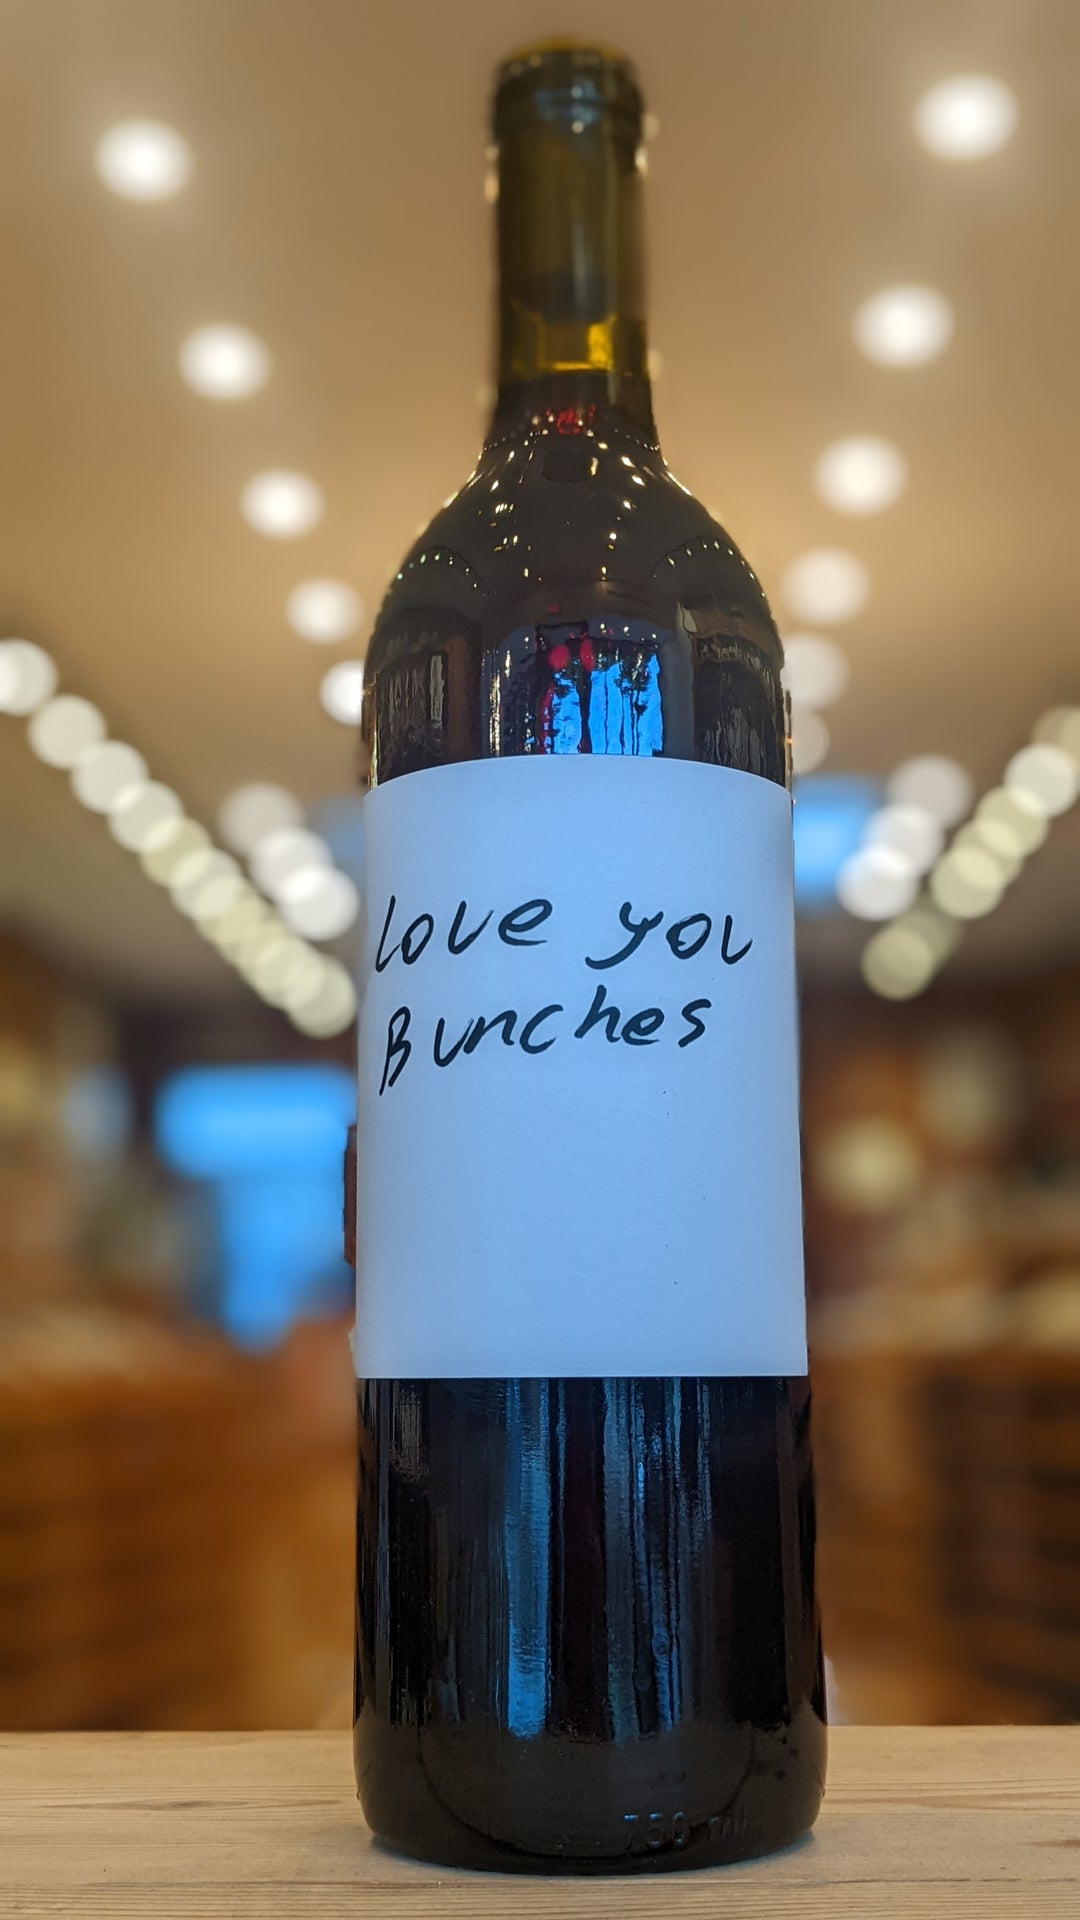 Love you
Bunches
750 ml